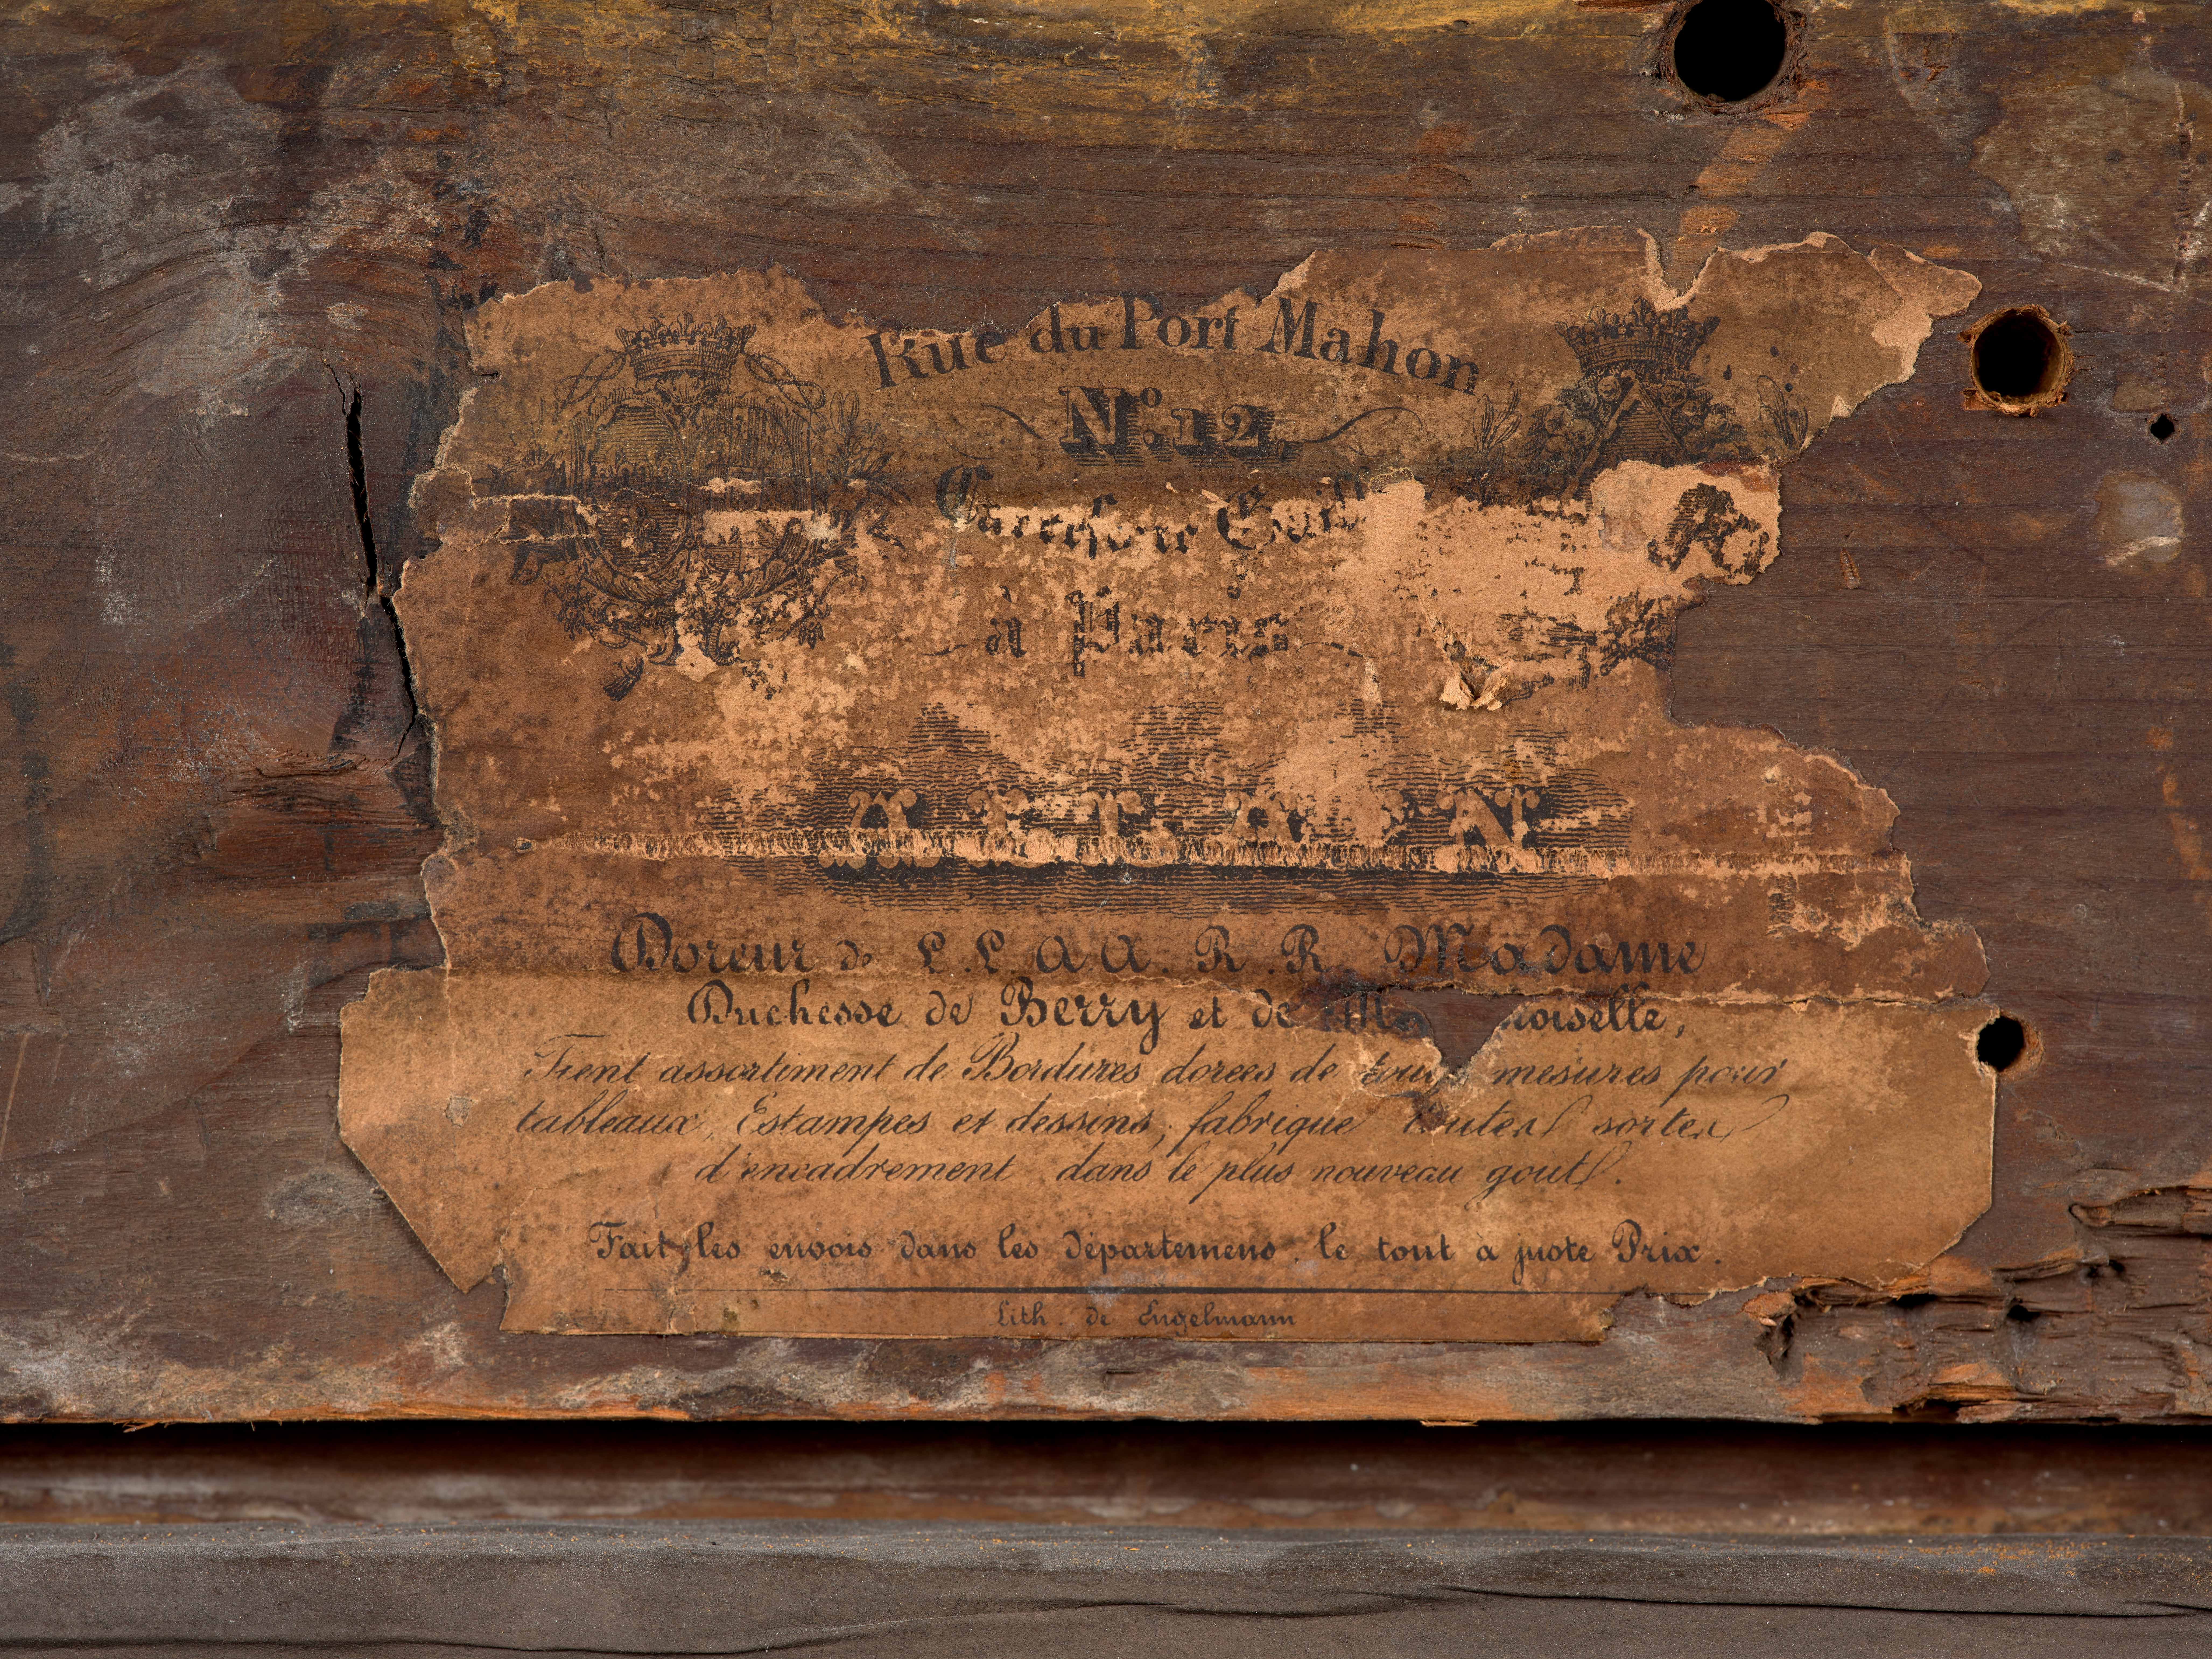 Rue du Port Mahon
N.º 12
Carrefour Gaill
à Paris
ALLAIN
Doreur de L.L. A A. R.R. Madame
Duchesse de Berry et de M noiselle,
Tient assortiment de Bordures dorees de toutes mesures pour
tableaux, Estampes et dessins, fabrique toutes sortes
d'encadrement dans le plus nouveau gout.
Fait les envois dans les départemens. le tout à juste Prix.
Lith. de Engelmann